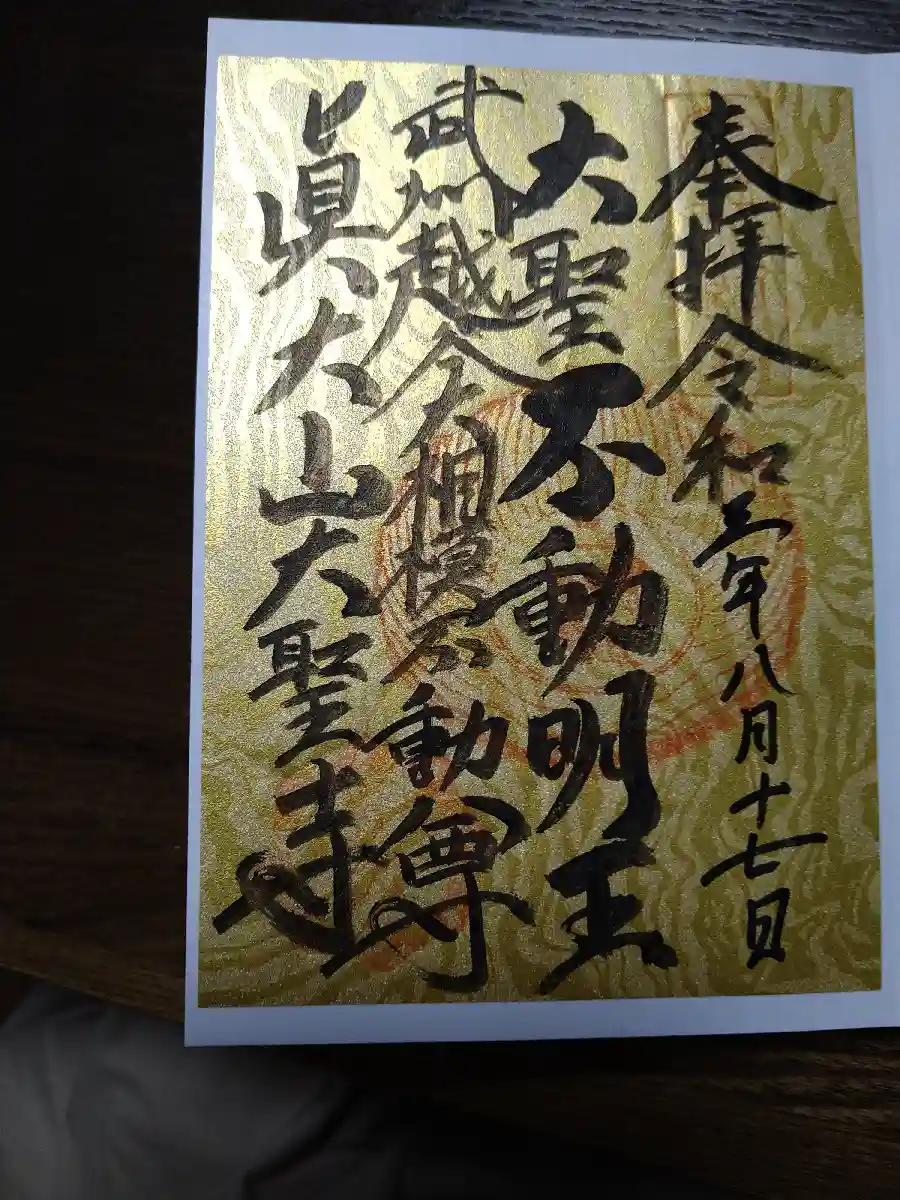 奉拝 令和三年八月十七日
大聖不動明王
武州越谷大相模不動尊
眞大山大聖寺